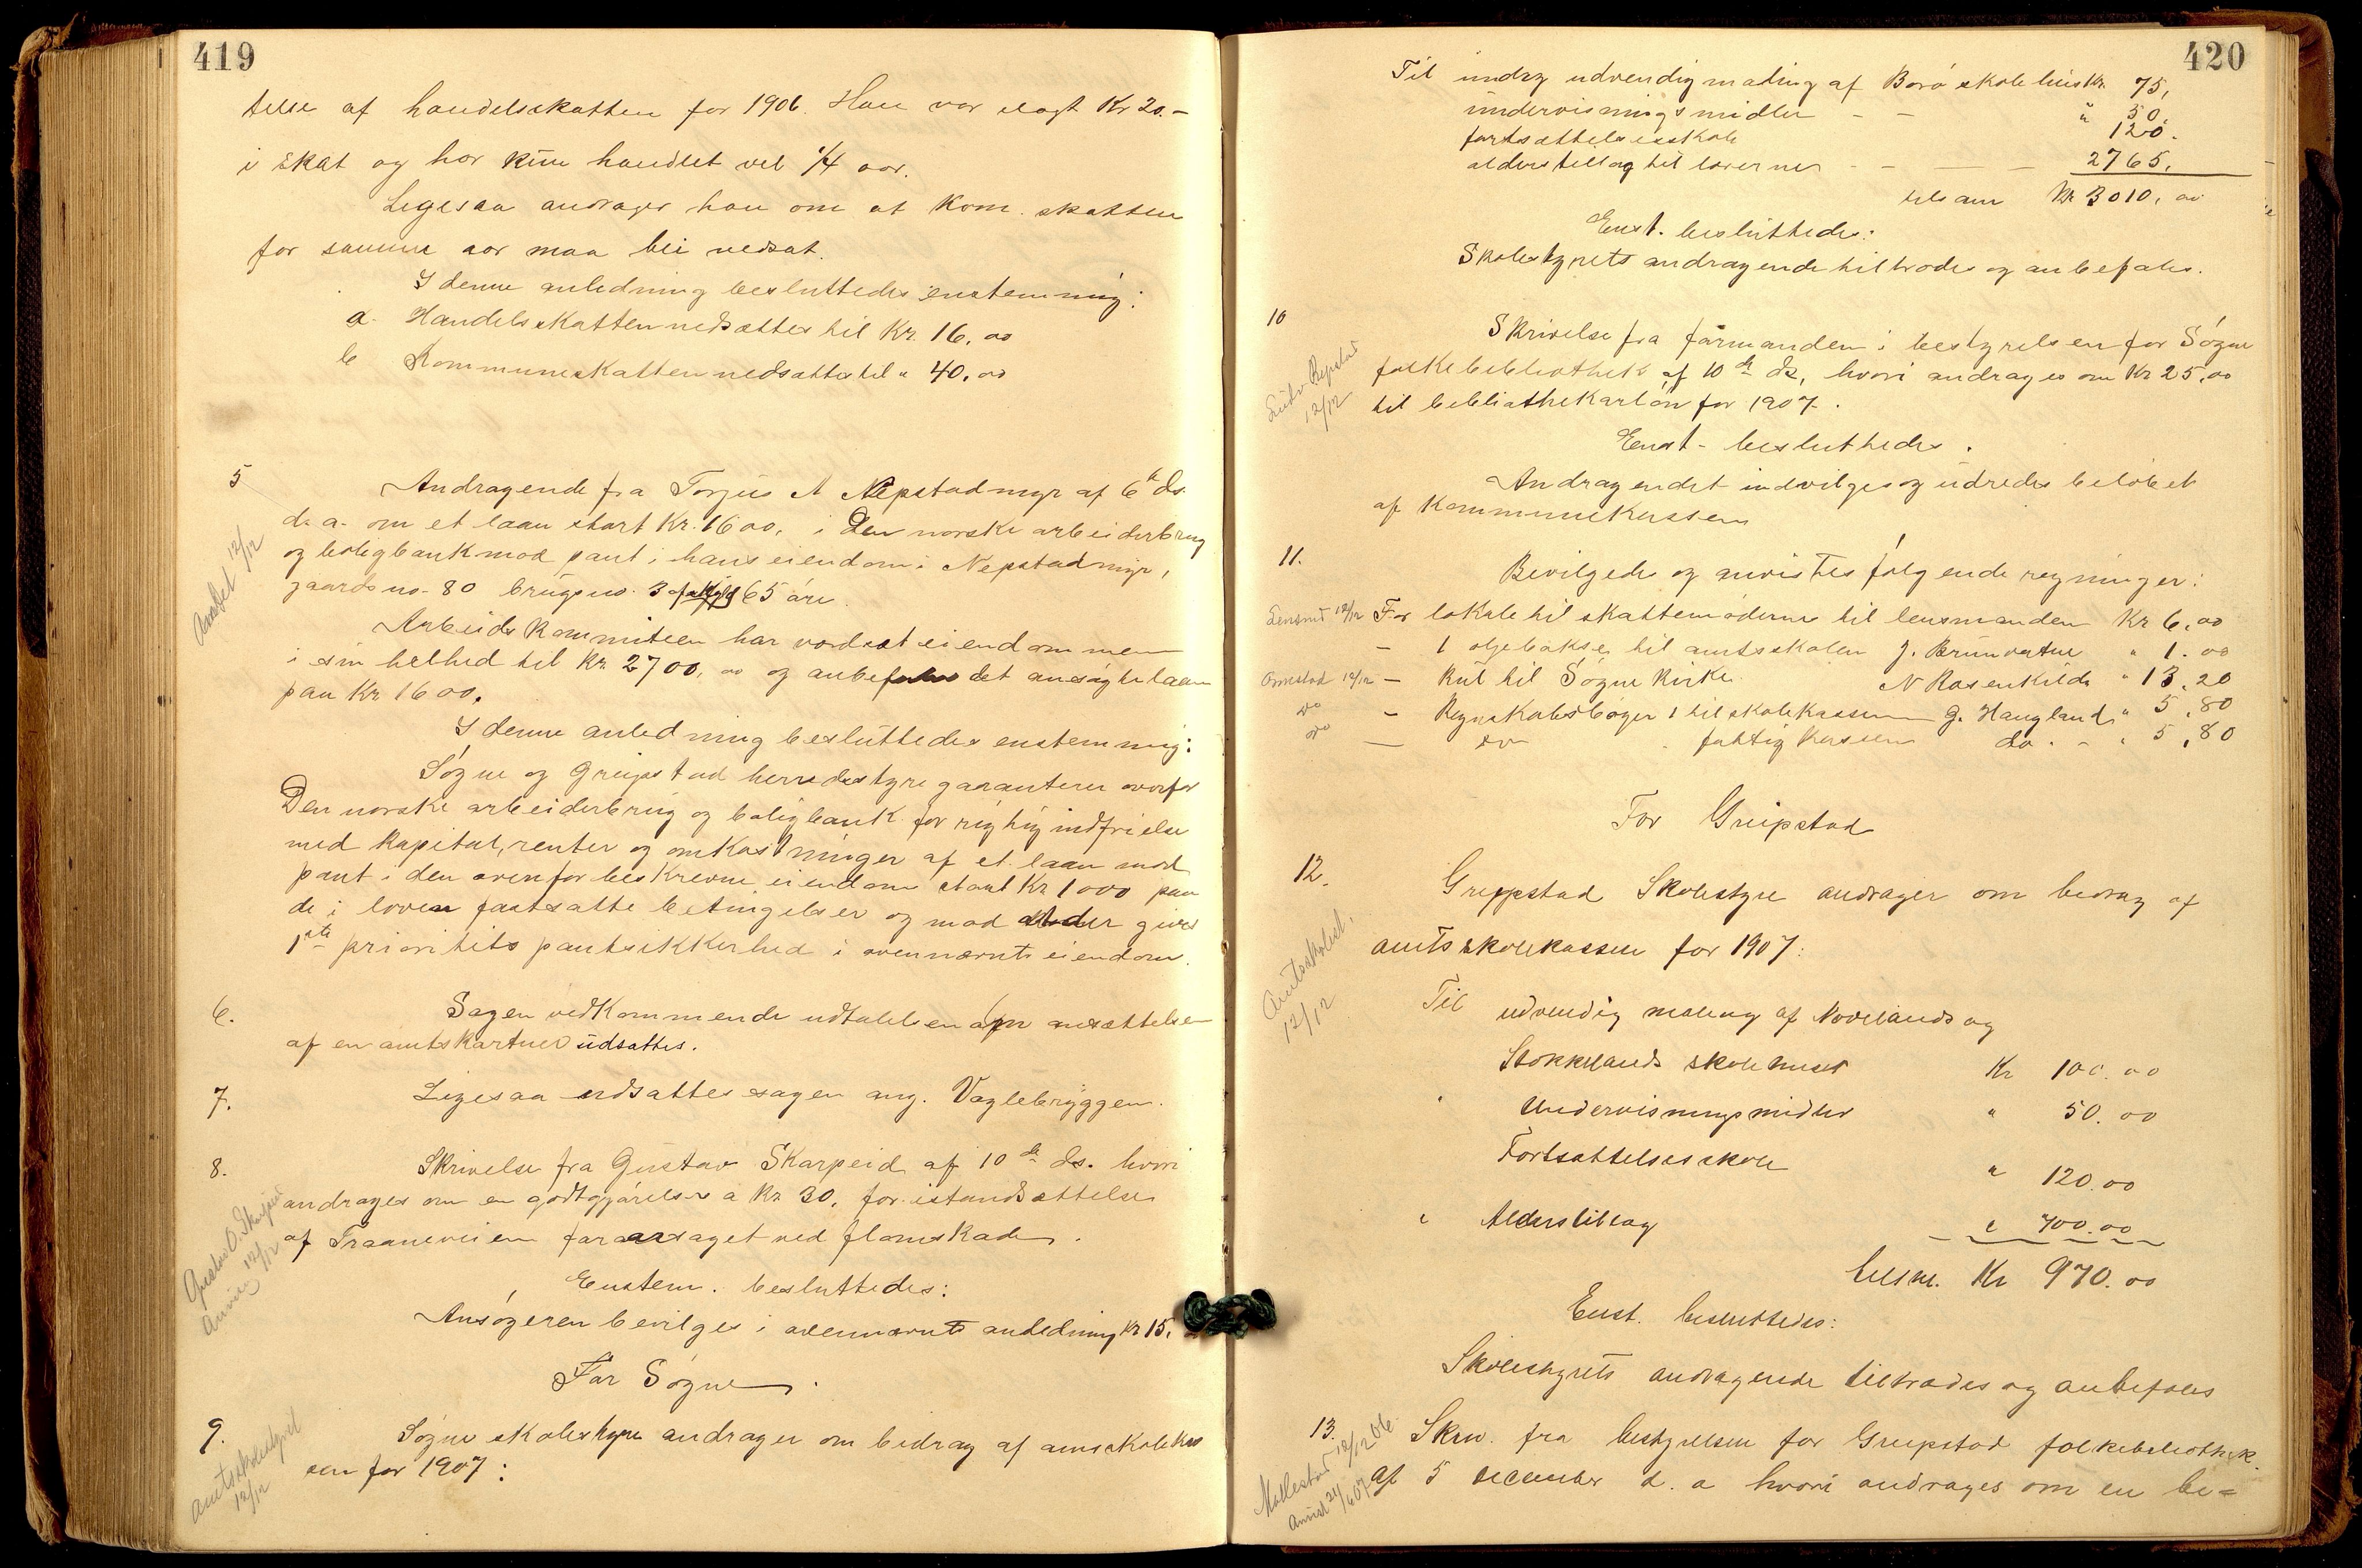 419
telse af handelsskatten for 1906. Han var ilagt Kr 20.-
i skat og har kun handlet vel 1/4 aar.
Ligesaa andrager han om at kom. skatten
for samme aar maa bli nedsat.
I denne anledning besluttedes enstemmig:
a. Handelsskatten nedsættes til Kr. 16,00
b Kommuneskatten nedsættes til " 40,00
5
Anbef 12/12
Andragende fra Torjus A Nepstadmyr af 6te ds.
d. a. om et laan stort Kr. 1600, i Den norske arbeiderbrug
og boligbank mod pant i hans eiendom i Nepstadmyr,
gaards no. 80 brugsno. 3 af skyld 65 øre.
Arbeidskommiteen har værdsat eiendommen
i sin helhed til Kr 2700,00 og anbefales det ansøgte laan
paa Kr 1600.
I denne anledning besluttedes enstemmig:
Søgne og Greipstad herredsstyre garanterer overfor
Den norske arbeiderbrug og boligbank for rigtig indfrielse
med kapital, renter og omkostninger af et laan mod
pant i den ovenfor beskrevne eiendom stort Kr 1000 paa
de i loven fastsatte betingelser og mod at der gives
1ste prioritets pantsikkerhed i ovennævnte eiendom.
6.
Sagen vedkommende udtalelsen om ansættelse
af en amtsgartner udsattes.
7.
Ligesaa udsattes sagen ang. Vaglebryggen.
8.
Gustav O. Skarpeid
Anvist 12/12
Skrivelse fra Gustav Skarpeid af 10de ds. hvori
andrages om en godtgjørelse a Kr 30, for istandsættelse
af Traaneveien foraarsaget ved flomskade.
Enstem. besluttedes:
Ansøgeren bevilges i ovennævnte anledning Kr 15,
For Søgne.
9.
Amtsskolestyret
12/12
Søgne skolestyre andrager om bidrag af amsskolekas
sen for 1907:
420
Til indv. udvendig maling af Borø skolehus Kr. 75,
undervisningsmidler - - " 50.
fortsættelsesskole 120.
alderstillæg til lærerne - - - 2765.
tilsam Kr 3010,00
Enst. besluttedes:
Skolestyrets andragende tiltrædes og anbefales.
10
12/12
Skrivelse fra formanden i bestyrelsen for Søgne
folkebibliothek af 10de ds, hvori andrages om Kr 25,00
til bibliothekarløn for 1907.
Enst- besluttedes.
Andragendet indvilges og udredes beløbet
af Kommunekassen
11.
Bevilgedes og anvistes følgende regninger:
Lensmd 12/12 For lokale til skattemøderne til lensmanden Kr 6,00
- 1 oljebokse til amtsskolen J. Brunvatne " 1.00
12/12 - Kul til Søgne kirke. N Rosenkilde " 13,20
do - Regnskabsbøger 1 til skolekassen G. Haugland " 5,80
do - do fattigkassen do. - " 5,80
For Greipstad
12.
Amtsskolest.
12/12
Greppstad Skolestyre andrager om bedrag af
amtsskolekassen for 1907:
Til udvendig maling af Novelands og
Stokkelands skolehuser Kr 100.00
" Undervisningsmidler " 50.00
Fortsættelsesskole " 120.00
" Alderstillæg " 700.00
tilsm. Kr 970.00
Enst. besluttedes:
Skolestyrets andragende tiltrædes og anbefales
13.
12/12 06.
Anvist 24/4 07
Skriv. fra bestyrelsen for Greipstad folkebibliothek
af 5 december d. a hvori andrages om en be=